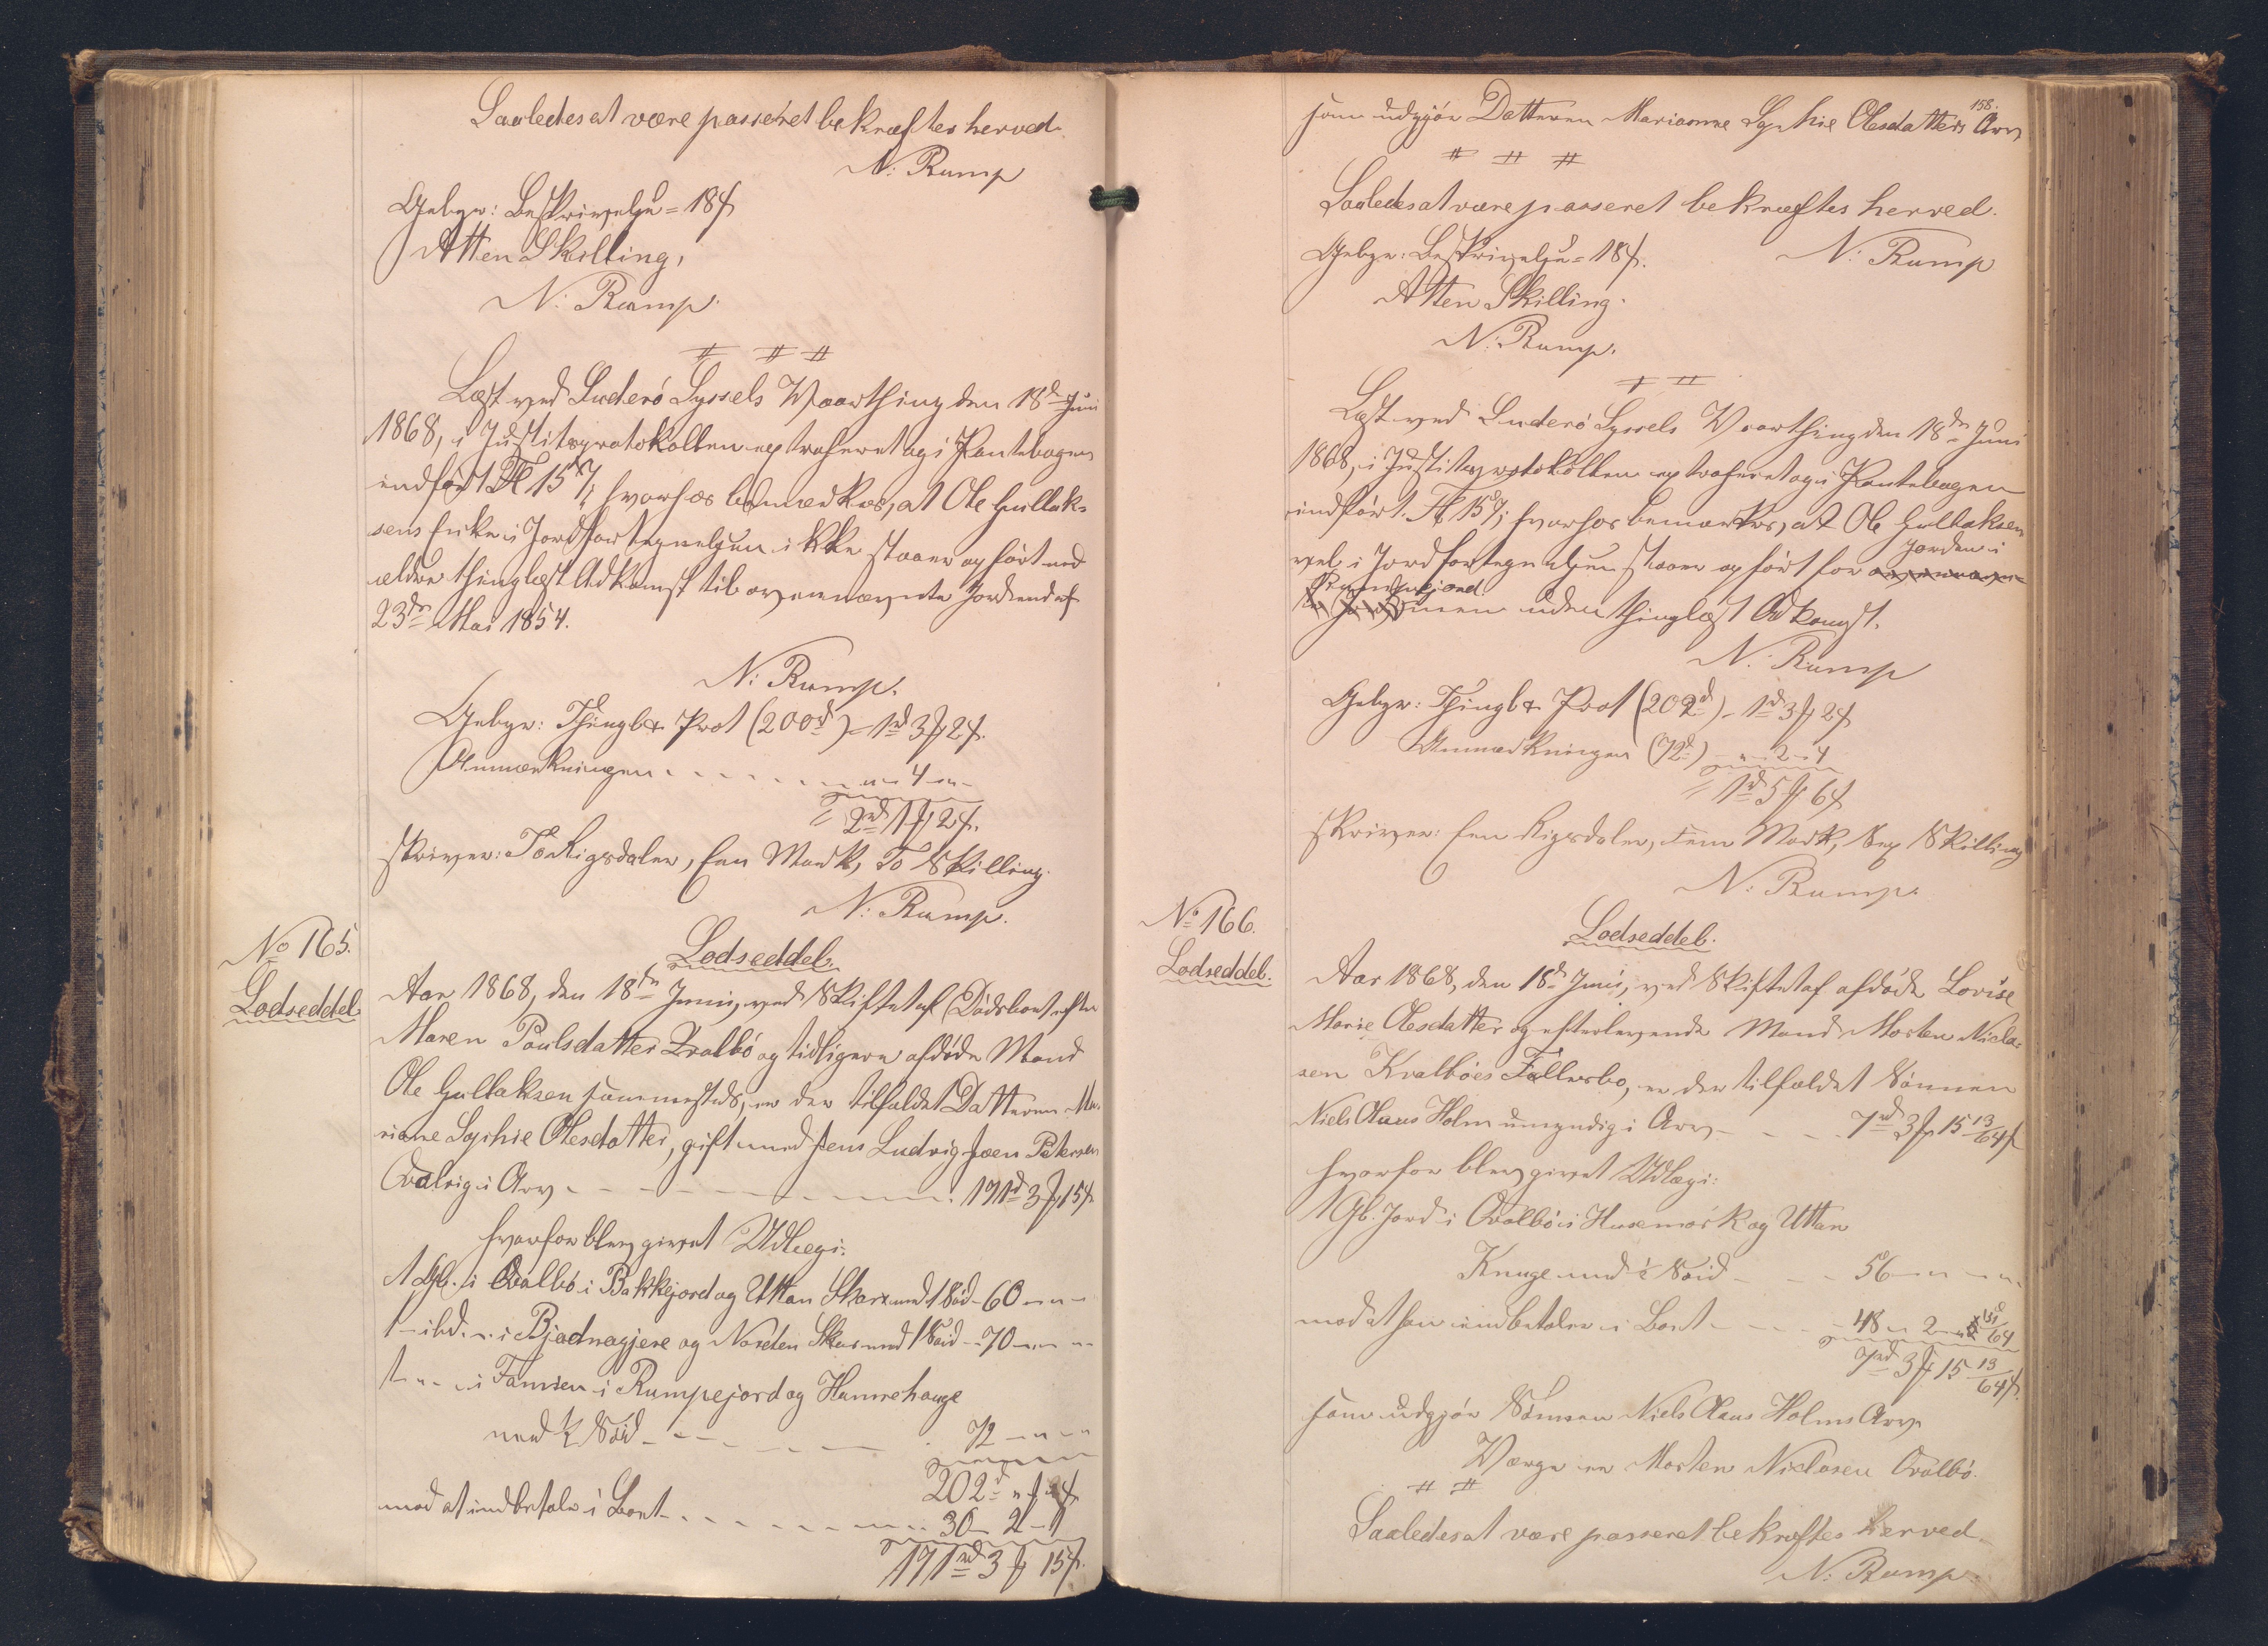 Saaledes at være passeret bekræftes herved.
N: Rump
Gebyr: Beskrivelse = 18 ß
Atten Skilling.
N: Rump.
Læst ved Suderö Syssels Vaarthing den 18de Juni
1868, i Justitsprotokollen extraheret og i Pantebogen
indført Fol 157; hvorhos bemærkes, at Ole Gullak-
sens Enke i Jordfortegnelsen ikke staaer opført med
ældre thinglæst Adkomst til ovennævnte Jord end af
23de Mai 1854.
N: Rump.
Gebyr: Thingl. & Prot (200rd) = 1rd 3 mk 2 ß.
Anmærkningen - - - - - - - " - 4 - " -
= 2rd 1 mk 2 ß.
skriver: To Rigsdaler, Een Mark, To Skilling.
N: Rump.
No 165.
Lodseddel
Lodseddel.
Aar 1868, den 18de Juni, ved Skiftet af Dødsboet efter
Maren Poulsdatter Qvalbö og tidligere afdøde Mand
Ole Gullaksen sammesteds, er der tilfaldet Datteren Ma-
rianne Sophie Olesdatter, gift med Jens Ludvig Joen Petersen
Qvalvig i Arv - - - - - - - 171rd 3 mk 15 ß.
hvorfor blev givet Udlæg:
1 Gl. i Qvalbö i Bakkejord og Uttan Skar med 1 Söid - 60 - " - " -
1 - ibd. - i Bjadnagjere og Norden Skar med 1 Söid - 70 - " - " -
1 - " - i Famien i Rumpejord og Hamrehauge
med ½ Söid - - - - - - 72 - " - "
202rd " mk " ß
mod at indbetale i Boet - - - - - - - - 30 - 2 - 1
171rd 3 mk 15 ß.
158.
som udgjör Datteren Marianne Sophie Olesdatters Arv
Saaledes at være passeret bekræftes herved.
Gebyr: Beskrivelse = 18 ß. N: Rump
Atten Skilling.
N: Rump.
Læst ved Suderö Syssels Vaarthing den 18de Juni
1868, i Justitsprotokollen extraheret og i Pantebogen
indført Fol 157; hvorhos bemærkes, at Ole Gullaksen
vel i Jordfortegnelsen staaer opført for Jorden i
Rumpejord men uden thinglæst Adkomst.
N. Rump
Gebyr: Thingl. & Prot (202rd) - 1rd 3 mk 2 ß
Anmærkningen (72rd) - " - 2 - 4
= 1rd 5 mk 6 ß
skriver: Een Rigsdaler, Fem Mark, Sex Skilling
N: Rump.
No 166.
Lodseddel.
Lodseddel.
Aar 1868, den 18de Juni, ved Skiftet af afdøde Lovise
Marie Olesdatter og efterlevende Mand Morten Nicla-
sen Kvalböes Fællesbo, er der tilfaldet Sönnen
Niels Olaus Holm umyndig i Arv - - - - 7rd 3 mk 15 13/64 ß
hvorfor blev givet Udlæg:
1 Gl. Jord i Qvalbö i Husemörk og Uttan
Knuge med ½ Söid - - - 56 - " - " -
mod at han indbetaler i Boet - - - - 48 - 2 - 51/64
7rd 3 mk 15 13/64 ß.
som udgjör Sönnen Niels Olaus Holms Arv.
Værge er Morten Niclasen Qvalbö.
Saaledes at være passeret bekræftes herved.
N: Rump.